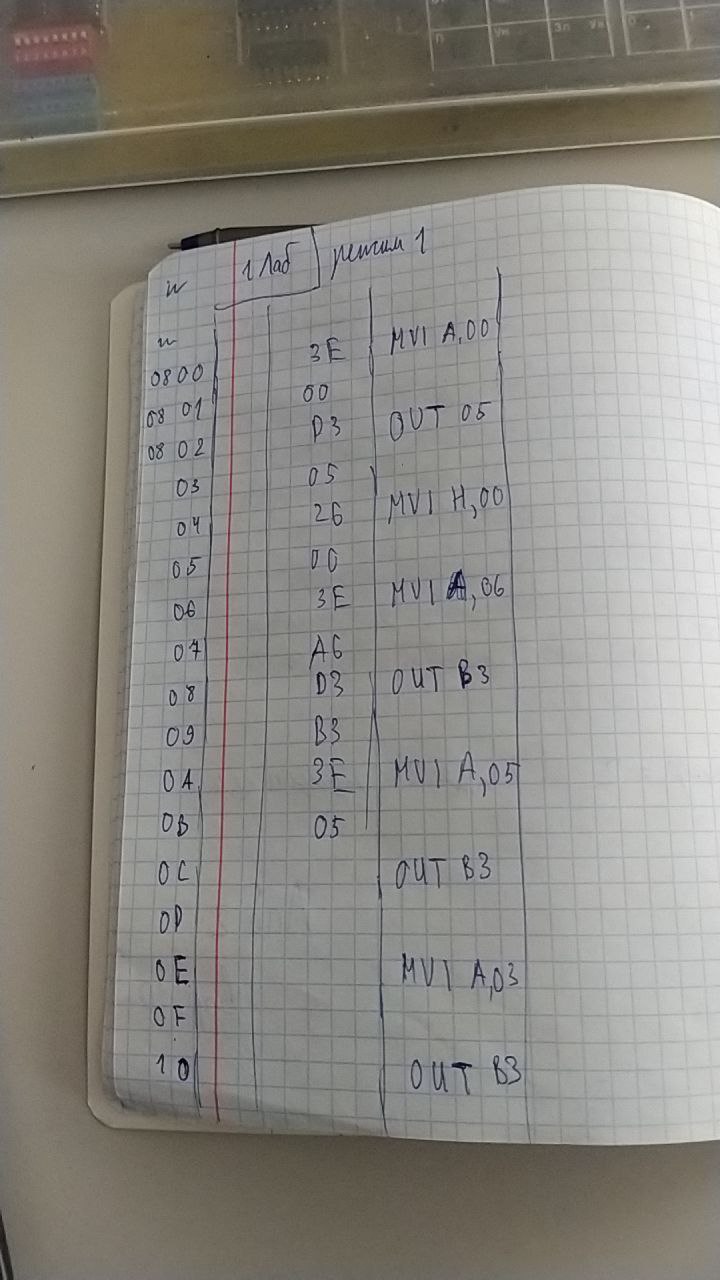 П Ум Зп Ум
1 Лаб режим 1
3E MVI A,00
0800
00
08 01
D3 OUT 05
08 02
05
03
26 MVI H,00
04
00
05
3E MVI A,06
06
A6
07
D3 OUT B3
08
B3
09
3E MVI A,05
0A
05
0B
0C OUT B3
0D
0E MVI A,03
0F
10 OUT B3